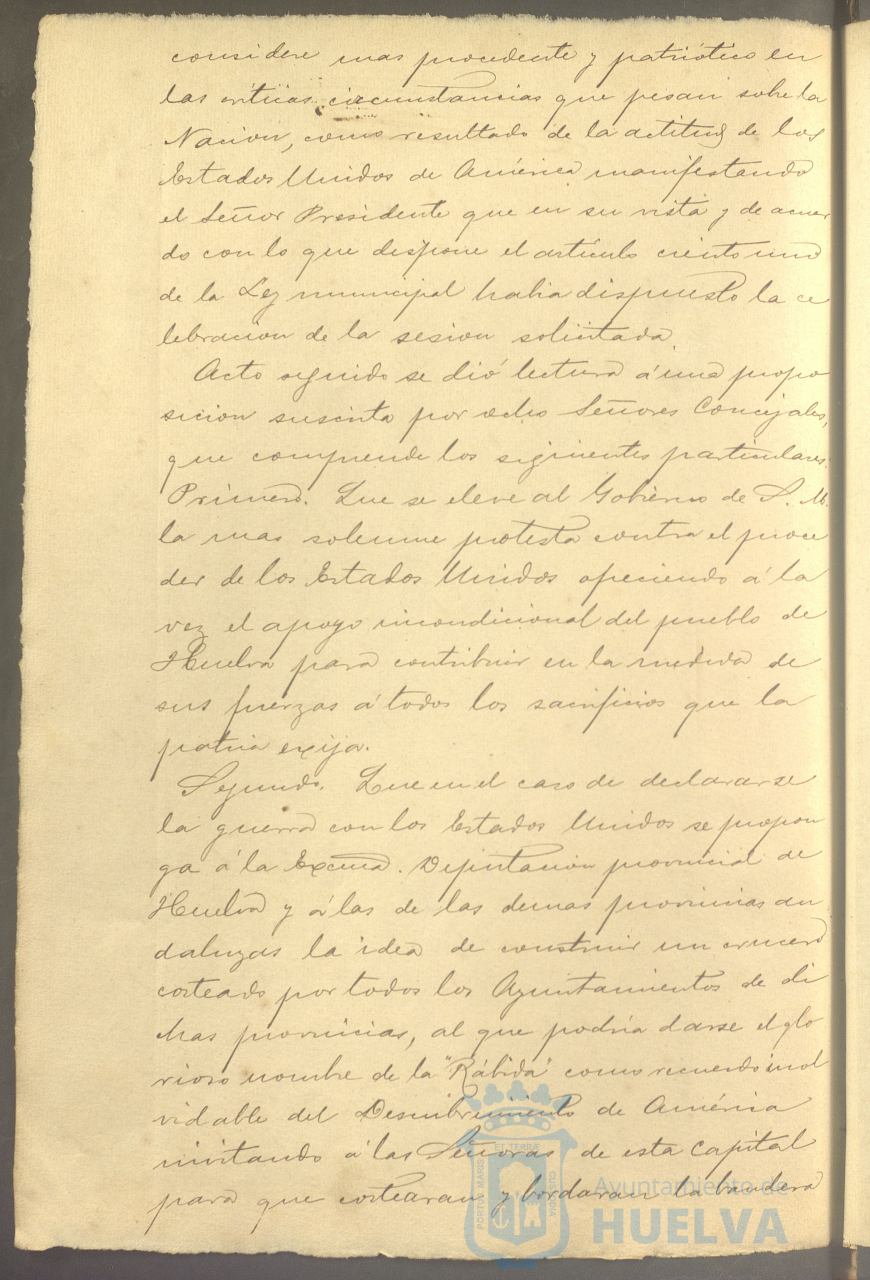 considere mas procedente y patriótico en
las criticas circunstancias que pesan sobre la
Nacion, como resultado de la actitud de los
Estados Unidos de América manifestando
el Señor Presidente que en su vista y de acuer
do con lo que dispone el artículo ciento uno
de la Ley municipal habia dispuesto la ce
lebracion de la sesion solicitada.
Acto seguido se dió lectura á una propo
sicion suscrita por ocho Señores Concejales,
que comprende los siguientes particulares.
Primero. Que se eleve al Gobierno de S. M.
la mas solemne protesta contra el proce
der de los Estados Unidos ofreciendo á la
vez el apoyo incondicional del pueblo de
Huelva para contribuir en la medida de
sus fuerzas á todos los sacrificios que la
patria exija.
Segundo. Que en el caso de declararse
la guerra con los Estados Unidos se propon
ga á la Excma. Diputación provincial de
Huelva y á las de las demas provincias an
daluzas la idea de construir un crucero
costeado por todos los Ayuntamientos de di
chas provincias, al que podría darse el glo
rioso nombre de la "Rábida" como recuerdo inol
vidable del Descubrimiento de América
invitando á las Señoras de esta capital
para que costearan y bordaran la bandera
PORTUS MARIS ET TERRÆ CUSTODIA
Ayuntamiento de
HUELVA